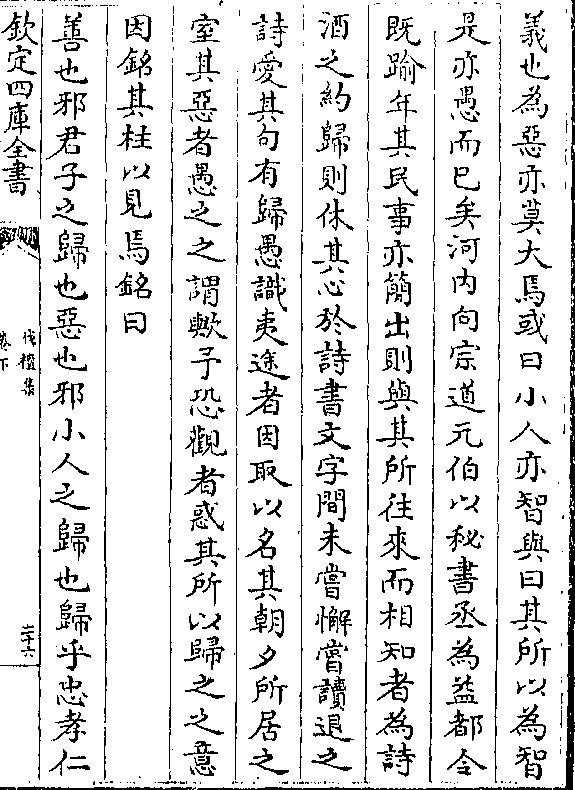 義也為惡亦莫大焉或曰小人亦智與曰其所以為智
是亦愚而已矣河内向宗道元伯以秘書丞為益都令
既踰年其民事亦簡出則與其所往來而相知者為詩
酒之約歸則休其心於詩書文字間未嘗懈嘗讀退之
詩愛其句有歸愚識夷途者因取以名其朝夕所居之
室其惡者愚之之謂歟予恐觀者惑其所以歸之之意
因銘其柱以見焉銘曰
善也邪君子之歸也惡也邪小人之歸也歸乎忠孝仁
欽定四庫全書
伐檀集
卷下
二十六